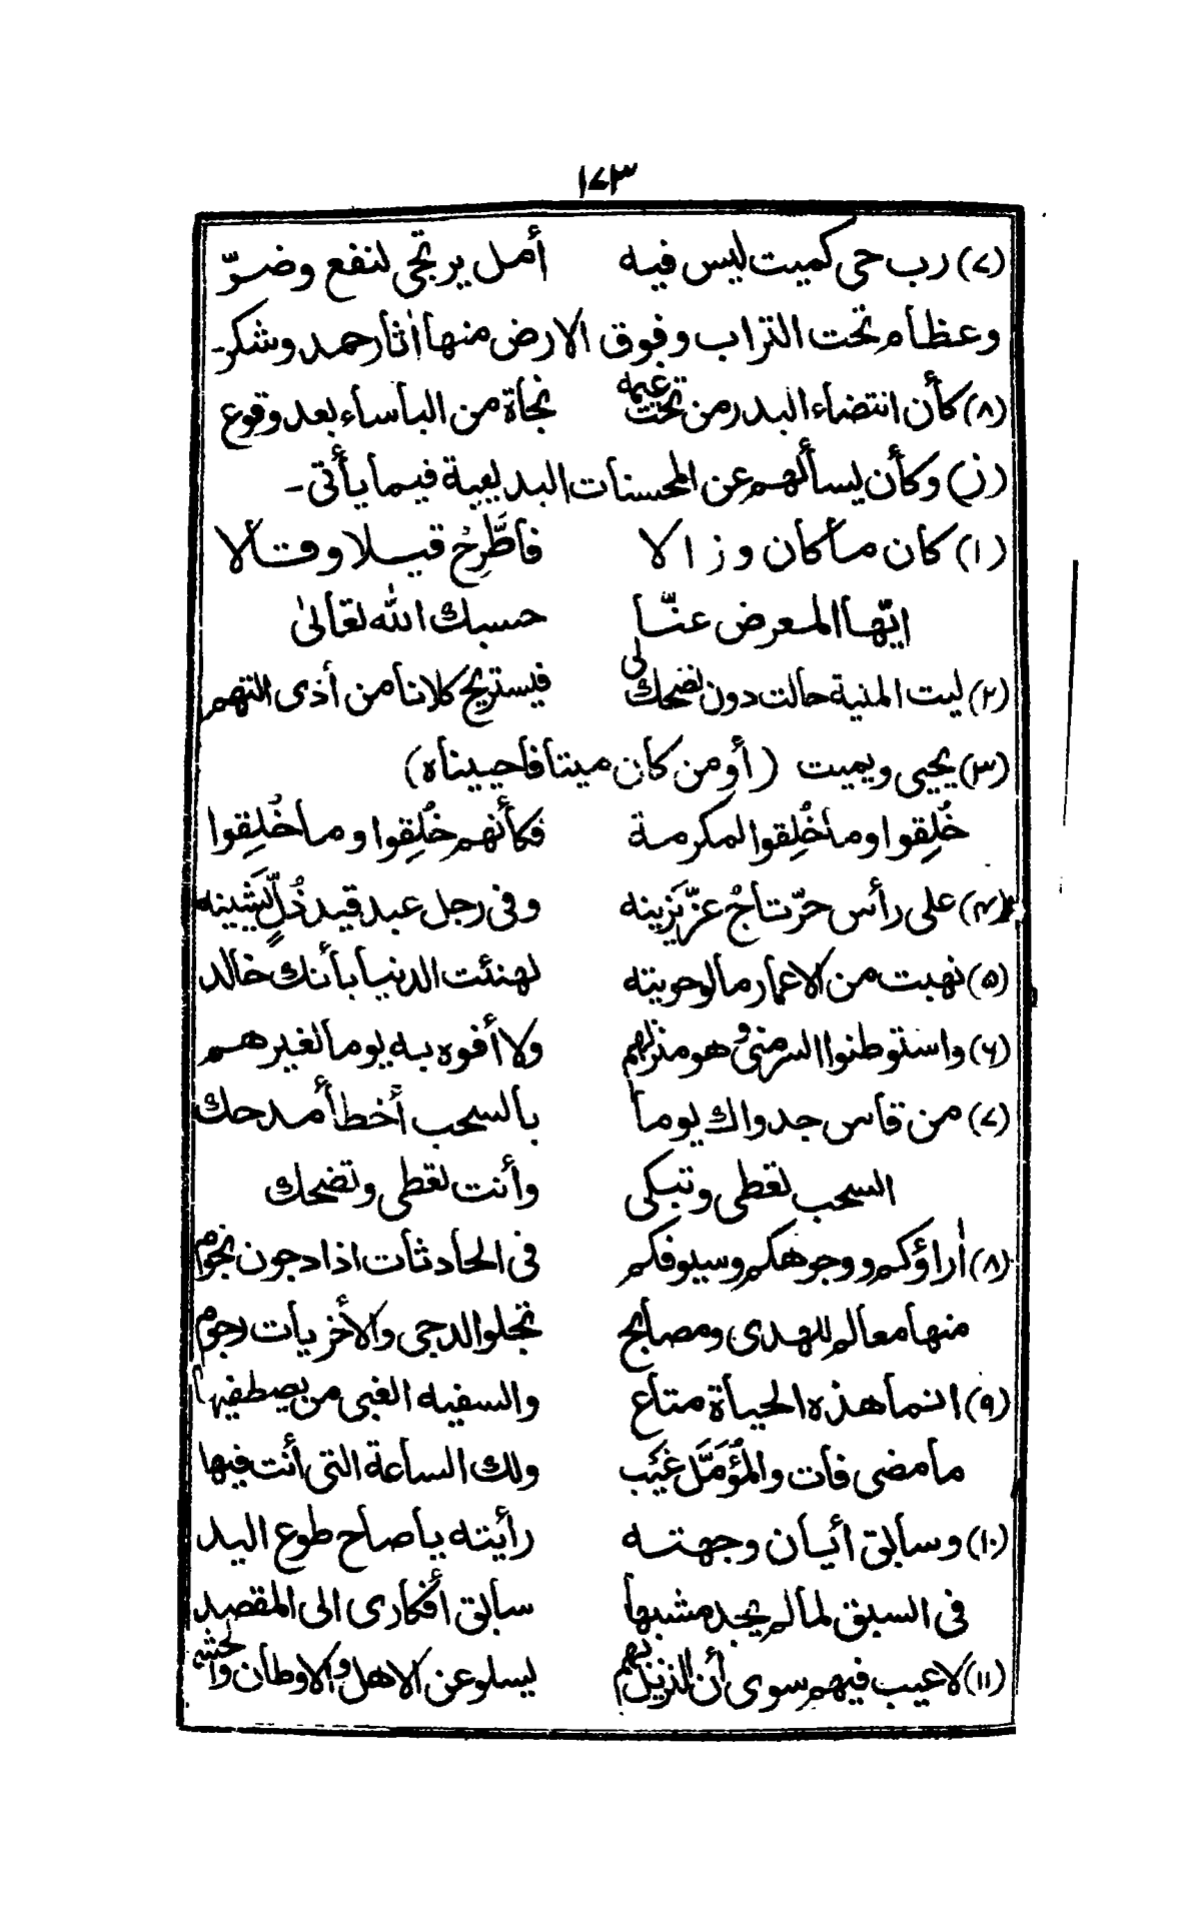 ١٧٣
(٧) رب حى كميت ليس فيه أمل يرتجى لنفع وضرّ
وعظام تحت التراب وفوق الارض منها اٰثار حمد وشكر-
(٨) كأن انتضاء البدر من تحت غيمه نجاة من البأساء بعد وقوع
(ز) وكأن يسألهم عن المحسنات البديعية فيما يأتى -
(١) كان ما كان وزالا فاطَّرِحْ قيلا وقالا
ايّها المعرض عنّا حسبك الله تعالىٰ
(٢) ليت المنية حالت دون نصحك لى فيستريح كلانا من أذى التهم
(٣) يحيى ويميت (أو من كان ميتا فاحييناه)
خُلِقوا وما خُلِقوا لمكرمة فكأنهم خُلِقوا وما خُلِقوا
(٤) على رأس حرّ تاجُ عزّ يَزينه وفى رجل عبد قيد ذُلٍّ يَشينه
(٥) نهبت من الاعمار ما لو حويته لهنئت الدنيا بأنك خالد
(٦) واستوطنوا السر منى وهو منزلهم ولا أفوه به يوما لغيرهم
(٧) من قاس جدواك يوما بالسحب أخطأ مدحك
السحب تعطى وتبكى وأنت تعطى وتضحك
(٨) اٰراؤكم ووجوهكم وسيوفكم فى الحادثات اذا دجون نجوم
منها معالم للهدى ومصابح تجلو الدجى والأخريات رجوم
(٩) انما هذه الحياة متاع والسفيه الغبى من يصطفيها
ما مضى فات والمُؤَمَّل غَيب ولك الساعة التى أنت فيها
(١٠) وسابق أيان وجهته رأيته يا صاح طوع اليد
فى السبق لما لم يجد مشبها سابق أفكارى الى المقصد
(١١) لا عيب فيهم سوى أن النزيل بهم يسلو عن الاهل والاوطان والحشم